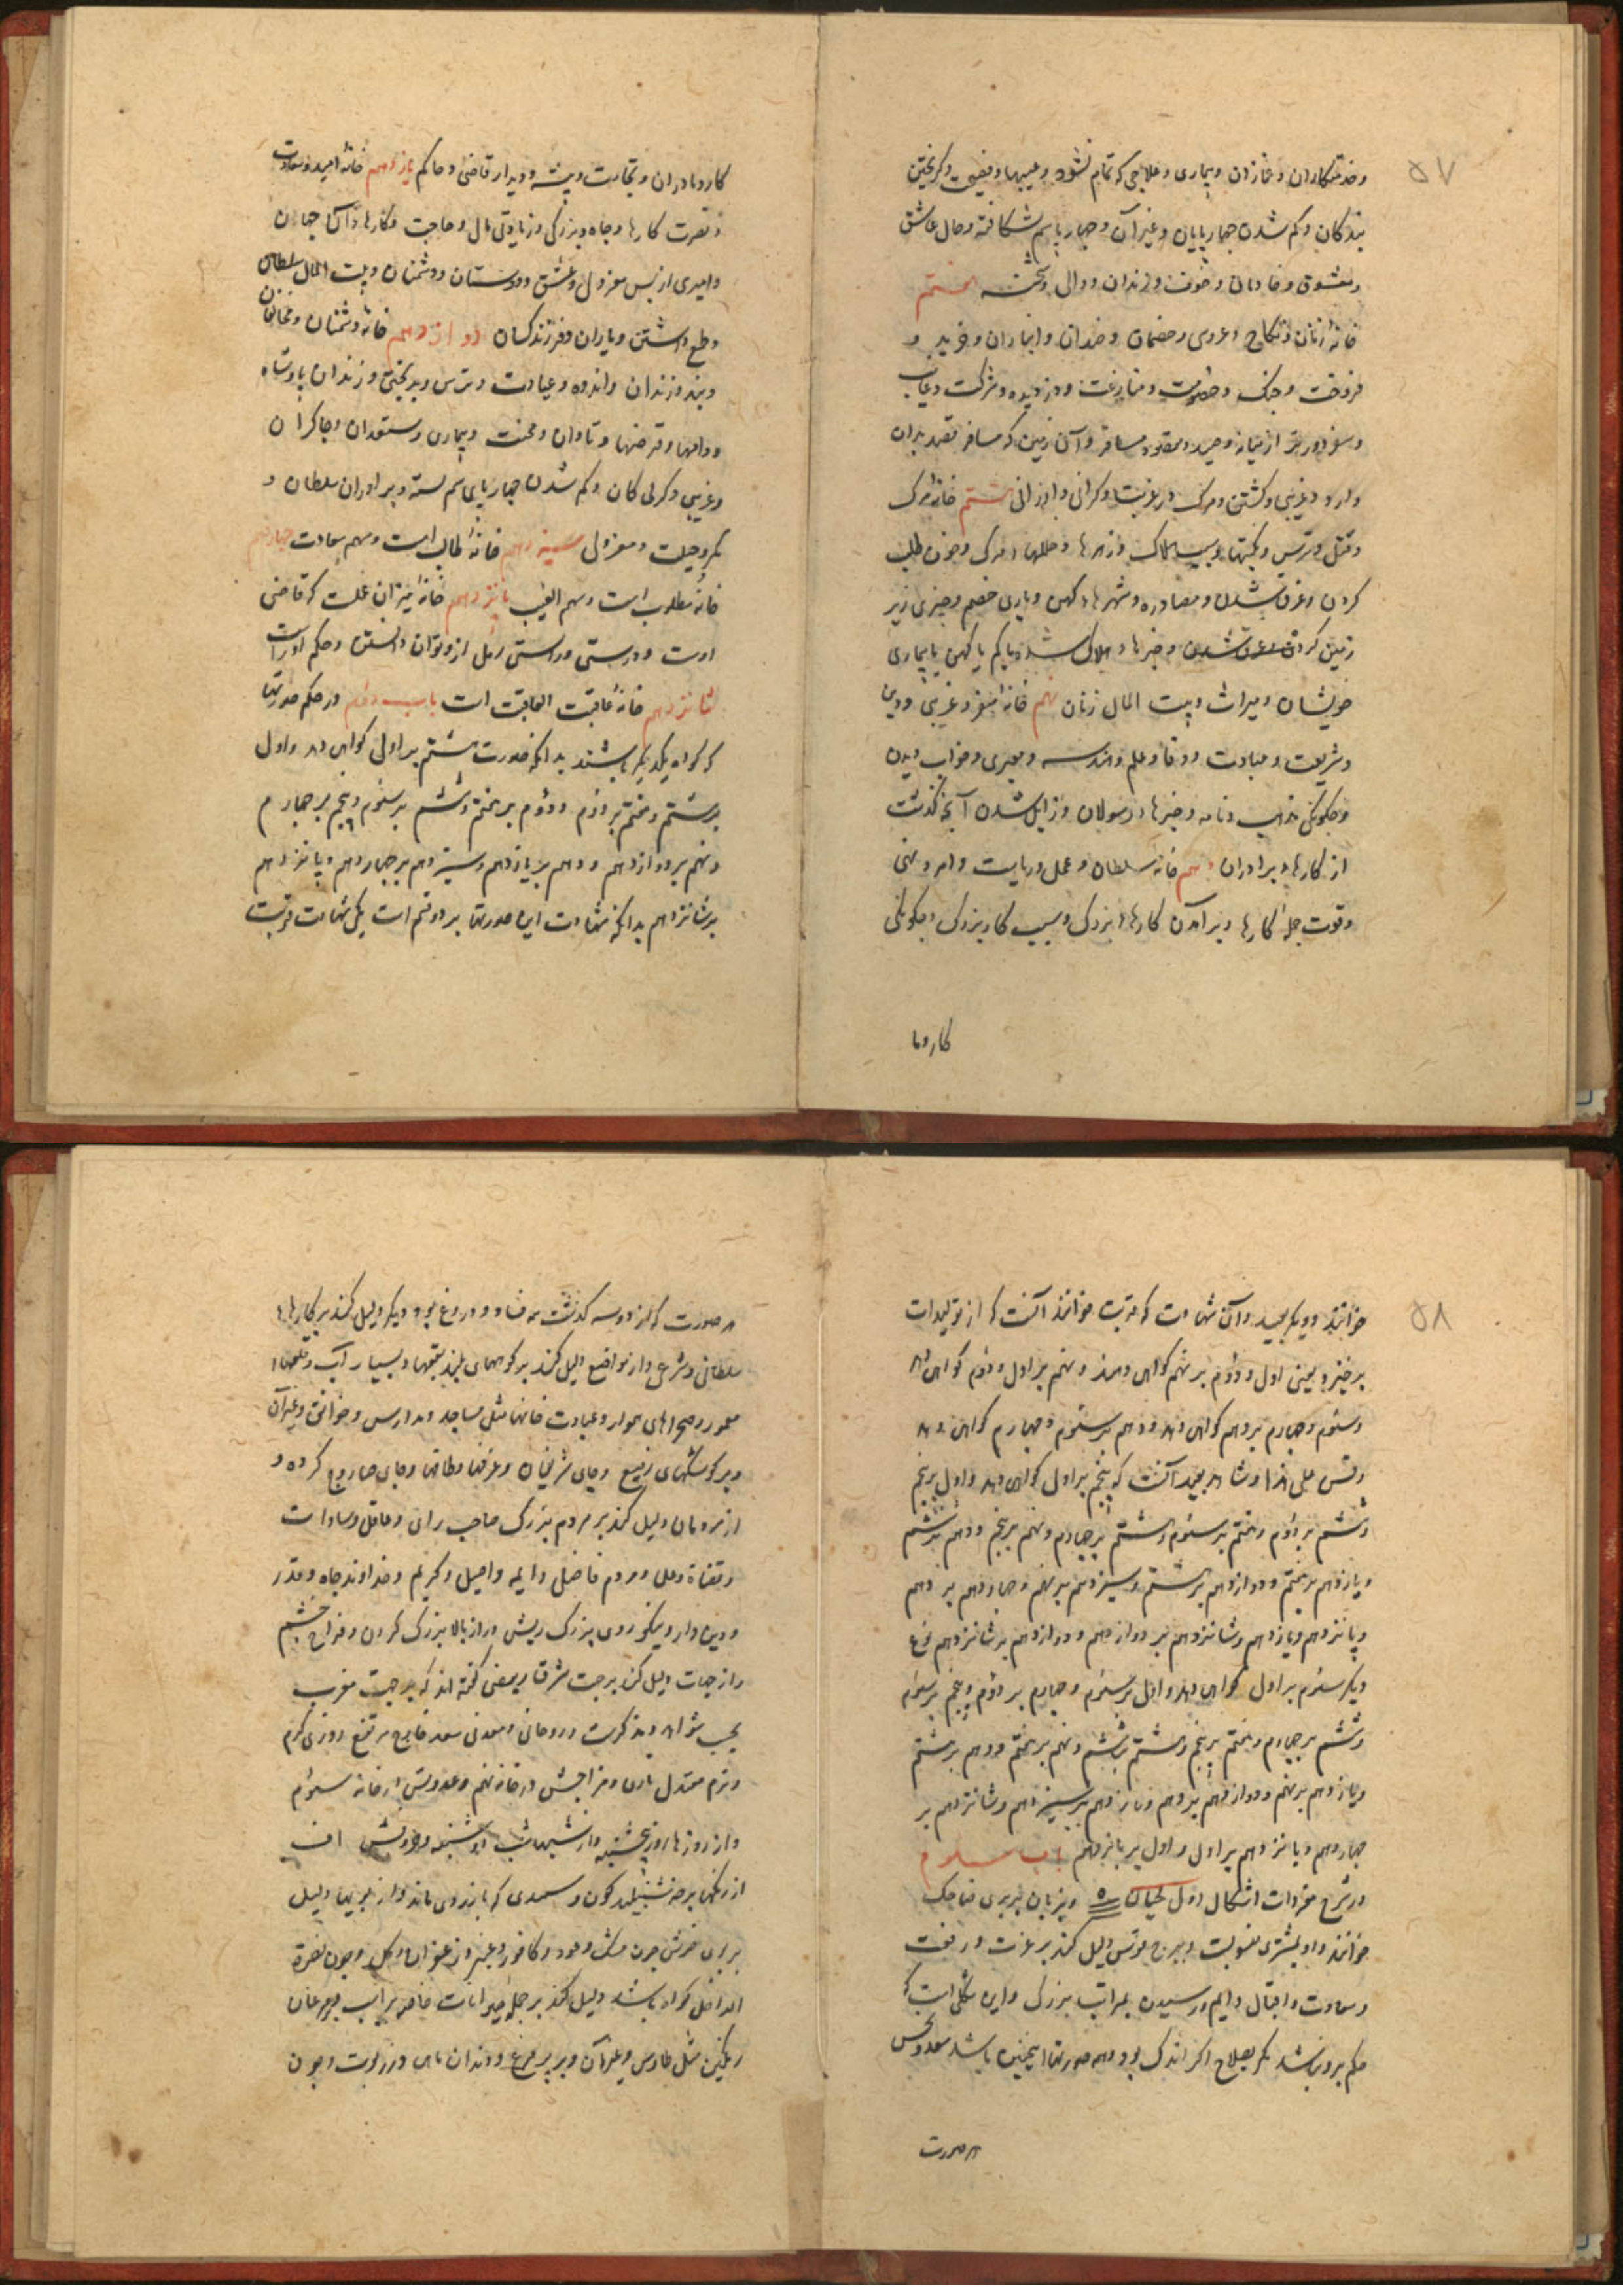 ۵۷
وخدمتکاران وغمازان وبیماری وعلاجی که تمام نشود وعیبها وفضیحت وگریختن
بندگان وگم شدن چهارپایان وغیر آن وچهارپا سم شکافته وحال عاشق
ومعشوق وخادمان وخوف وزندان ووالی وشحنه هفتم
خانهٔ زنان ونکاح وعروسی وخصمان وضدان وانبازان وخرید و
فروخت وجنک وخصومت ومنازعت ودزدیده وشرکت وغایب
وسفر دورتر از میانه وصید ومقصود مسافر وآن زمین که مسافر قصد بدان
دارد وغریبی وکشتن ومرک در غربت وگرانی وارزانی هشتم خانهٔ مرک
وقتل وترس ونکبتها وسبب هلاک وزهرها وعلتها ومرک وخون طلب
کردن وغرق شدن ومصادره وشهرهاء کهن ویاری خصم وچیزی زیر
زمین کردن وغرق شدن وچیزهاء هلاک شده یا گم یا کهن یا بیماری
خویشان ومیراث وبیت المال زنان نهم خانهٔ سفر وغریبی ودین
وشریعت وعبادت ووفا وعلم وهندسه ومعبری وخواب دیدن
وچگونگی مذهب ونامه وخبرها ورسولان وزایل شدن آنچه گذشت
از کارهاء برادران دهم خانهٔ سلطان وعمل وریاست وامر ونهی
وقوت جملهٔ کارها وبرآمدن کارهاء بزرک وسبب کار بزرک وچگونگی
کار وما
کار ومادران وتجارت وپیشه ودیدار قاضی وحاکم یازدهم خانهٔ امید وسعادت
ونصرت کارها وجاه وبزرگی وزیادتی مال وحاجت وکارهاء آن جهان
وامیری از پس معزولی وعشق ودوستان ودشمنان وبیت المال سلطان
وطمع داشتن ویاران وفرزند کسان دوازدهم خانهٔ دشمنان ومخالفان
وبند وزندان واندوه وعبادت وترس وبدبختی وزندان پادشاه
ووامها وقرضها وتاوان ومحنت وبیماری وستوران وچاکران
وغریبی وکم شدن چهارپای سم بسته وبرادران سلطان و
مکر وحیلت ومعزولی سیزدهم خانهٔ طالب است وسهم سعادت چهاردهم
خانهٔ مطلوب است وسهم الغیب پانزدهم خانهٔ میزان عملست که قاضی
اوست ودرستی وراستی رمل ازو توان دانستن وحکم او راست
شانزدهم خانهٔ عاقبت العاقبت است باب دوم در حکم صورتها
که گواه یکدیگر باشند بدانکه صورت هشتم بر اول گواهی دهد واول
بر هشتم وهفتم بر دوم ودوم بر هفتم وششم بر سوم وپنجم بر چهارم
ونهم بر دوازدهم ودهم بر یازدهم وسیزدهم بر چهاردهم وپانزدهم
بر شانزدهم بدانکه شهادت این صورتها بر دو قسم است یکی شهادت قربت
۵۸
خوانند ودیگر بعید وآن شهادت که قربت خوانند آنست که از تولیدات
برخیزد یعنی اول ودوم بر نهم گواهی دهند ونهم بر اول ودوم گواهی دهد
وسوم وچهارم بر دهم گواهی دهد ودهم بر سوم وچهارم گواهی دهد
وقس علی هذا وشاهد بعید آنست که پنجم بر اول گواهی دهد واول بر پنجم
وششم بر دوم وهفتم بر سوم وهشتم بر چهارم ونهم بر پنجم ودهم بر ششم
ویازدهم بر هفتم ودوازدهم بر هشتم وسیزدهم بر نهم وچهاردهم بر دهم
وپانزدهم ویازدهم وشانزدهم بر دوازدهم ودوازدهم بر شانزدهم نوع
دیگر سوم بر اول گواهی دهد واول بر سوم وچهارم بر دوم وپنجم بر سوم
وششم بر چهارم وهفتم بر پنجم وهشتم بر ششم ونهم بر هفتم ودهم بر هشتم
ویازدهم بر نهم ودوازدهم بر دهم وپانزدهم بر سیزدهم وشانزدهم بر
چهاردهم وپانزدهم بر اول واول بر پانزدهم باب سوم
در شرح مفردات اشکال اول لحیان وبزبان بربری ضاحک
خوانند واو بمشتری منسوبست وببرج قوس دلیل کند بر عزت ورفعت
وسعادت واقبال دایم ورسیدن بمراتب بزرک واین شکلی است که
حکم برو نباشد مگر بصلاح اگر اندک بود وهمه صورتها اینچنین باشد سعد ونحس
هر صورت
هر صورت که از دو سه گذشت همه فساد ودروغ بود ودیگر دلیل کند بر کارهاء
سلطانی وشرعی واز مواضع دلیل کند بر کوههای بلند وبسیار آب وقلعهاء
معمور وصحراهای هموار وعبادت خانها مثل مساجد ومدارس وخوانق وغیر آن
وبر کوشکهای رفیع وجای شریفان وغرفها وطاقها وجای صاروج کرده و
از مردمان دلیل کند بر مردم بزرک صاحب رای وعاقل وسادات
وقضاة وعلما ومردم فاضل وایم واصیل وکریم وخداوند جاه وقدر
ودین دار ونیکو روی بزرک ریش دراز بالا بزرک گردن وفراخ چشم
واز جهات دلیل کند بر جهت شرقا وبعضی گفته اند که بر جهت مغرب
ومذکرست وروحانی ومعدنی سعد خارج مرتفع روزی گرم
ونرم معتدل بادی ومزاجش در خانه نهم وعدویش در خانه سوم
واز روزها روز پنجشنبه واز شبها شب دوشنبه وحروفش الف
از رنگها هرچه کون وسمندی که بزردی ماند واز بویها دلیل
بر بوی خوش چون مشک وعود وکافور وعنبر وزعفران وگل وچون نصرة
الداخل گواه باشد دلیل کند بر جمله حیوانات خاصه بر اسب ومرغان
رنگین مثل طاوس وغیر آن وبر پر مرغ ودندان ماهی وزرکوبت وچون